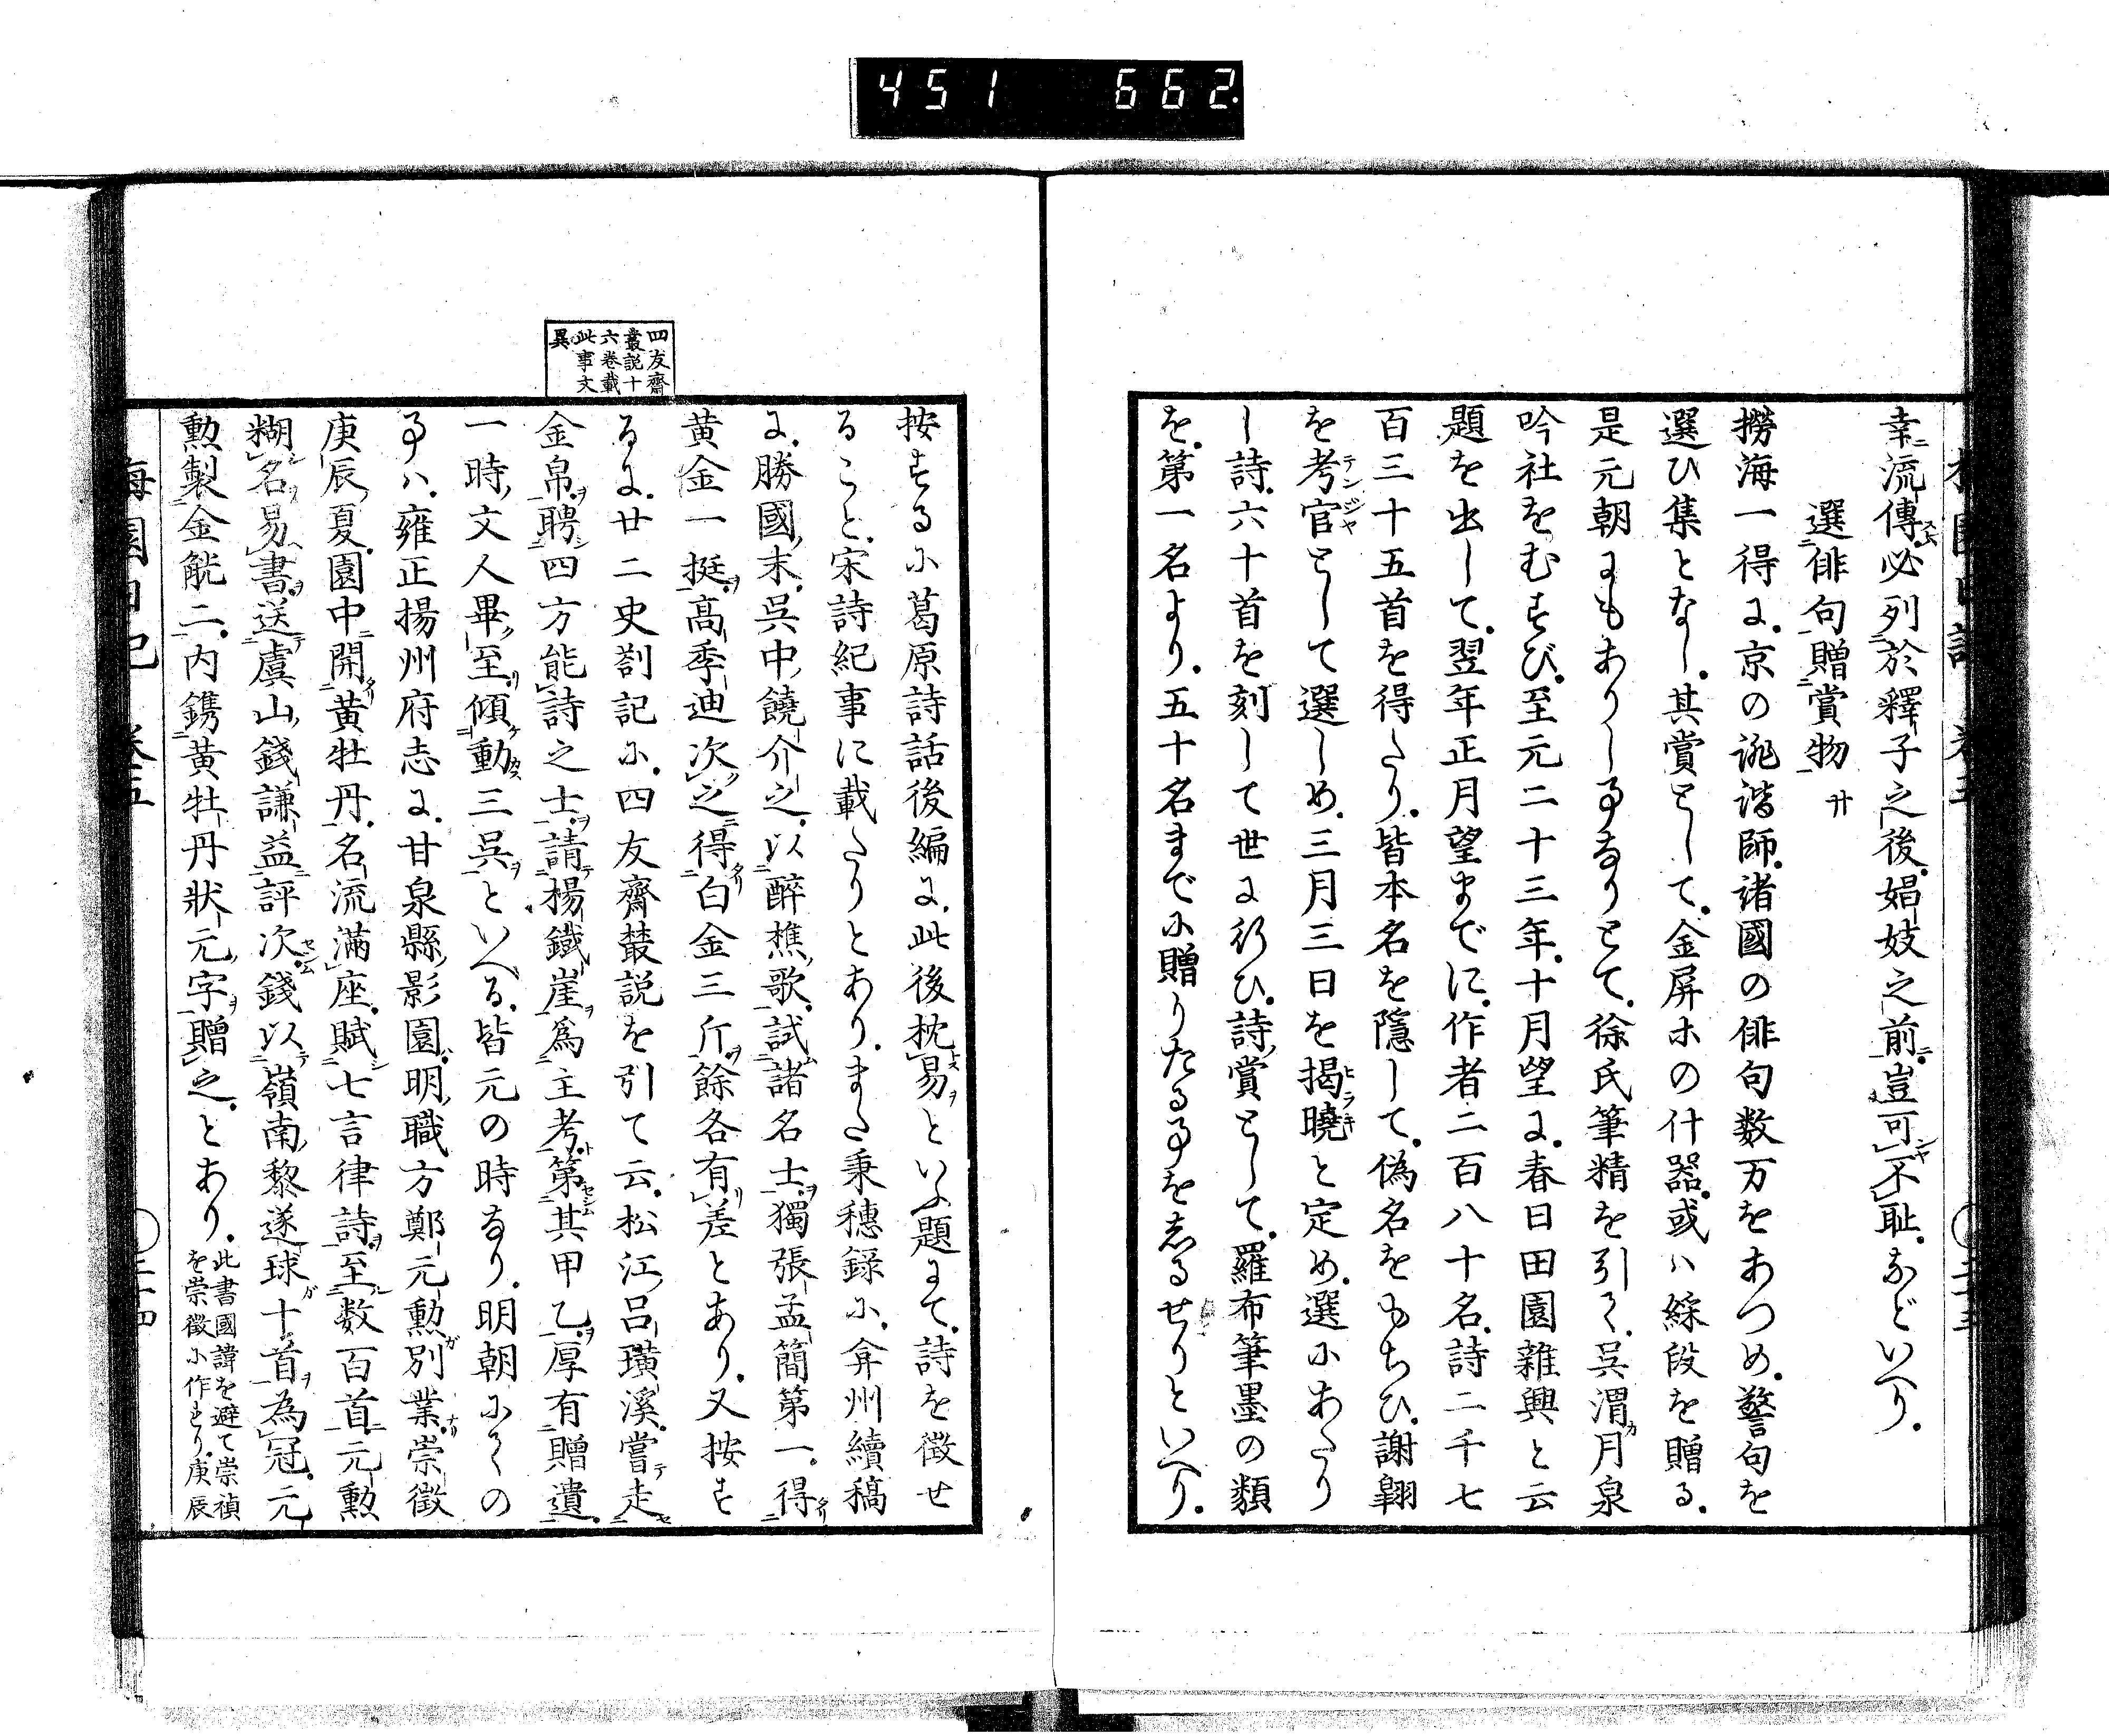 451 662.
幸流傳必列於釋子之後娼妓之前豈可不耻などいへり
選俳句贈賞物 廿
撈海一得に京の誹諧師諸國の俳句数万をあつめ警句を
選ひ集となし其賞として金屏ホの什器或ハ綵段を贈る
是元朝にもありし事なりとて徐氏筆精を引く呉渭月泉
吟社をむすび至元二十三年十月望に春日田園雜興と云
題を出して翌年正月望までに作者二百八十名詩二千七
百三十五首を得たり皆本名を隱して偽名をもちひ謝翺
を考官として選しめ三月三日を揭曉と定め選にあたり
し詩六十首を刻して世に行ひ詩賞として羅布筆墨の類
を第一名より五十名までに贈りたる事をしるせりといへり
四友齋
叢説十
六卷載
此事文
異
按するに葛原詩話後編に此後枕易といふ題にて詩を徴せ
ること宋詩紀事に載たりとありまた秉穗録に弇州續稿
に勝國末呉中饒介之以醉樵歌試諸名士獨張孟簡第一得
黄金一挺高季迪次之得白金三斤餘各有差とあり又按す
るに廿二史劄記に四友齋叢説を引て云松江呂璜溪嘗走
金帛聘四方能詩之士請楊鐵崖爲主考第其甲乙厚有贈遺
一時文人畢至傾動三呉といへる皆元の時なり明朝にくの
事ハ雍正揚州府志に甘泉縣影園明職方鄭元勲別業崇徴
庚辰夏園中開黄牡丹名流滿座賦七言律詩至数百首元勲
糊名易書送虞山錢謙益評次錢以嶺南黎遂球十首為冠元
勲製金觥二内鐫黄牡丹狀元字贈之とあり
此書國諱を避て崇禎
を崇徴に作れり庚辰
梅園日記 卷五